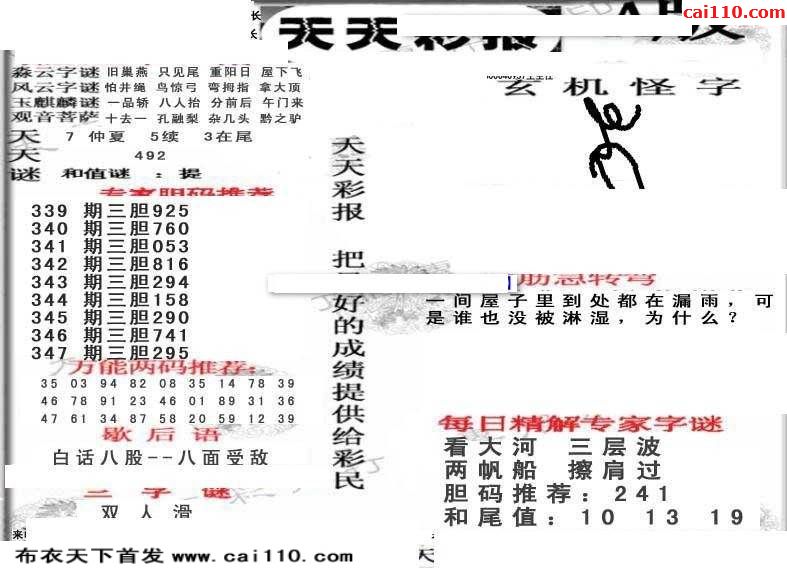 cai110.com
天天彩报
森云字谜 旧巢燕 只见尾 重阳日 屋下飞
风云字谜 怕井绳 鸟惊弓 弯拇指 拿大顶
玉麒麟谜 一品轿 八人抬 分前后 午门来
观音菩萨 十去一 孔融梨 杂几头 黔之驴
天 7 仲夏 5续 3在尾
天 492
谜 和值谜 : 提
专家胆码推荐
339 期三胆925
340 期三胆760
341 期三胆053
342 期三胆816
343 期三胆294
344 期三胆158
345 期三胆290
346 期三胆741
347 期三胆295
万能两码推荐:
35 03 94 82 08 35 14 78 39
46 78 91 23 46 01 89 31 36
47 61 34 87 58 20 59 12 39
歇后语
白话八股--八面受敌
三字谜
双人滑
布衣天下首发 www.cai110.com
天天彩报 把最好的成绩提供给彩民
玄机怪字
脑急转弯
一间屋子里到处都在漏雨，可
是谁也没被淋湿，为什么？
每日精解专家字谜
看大河 三层波
两帆船 擦肩过
胆码推荐：241
和尾值：10 13 19
天